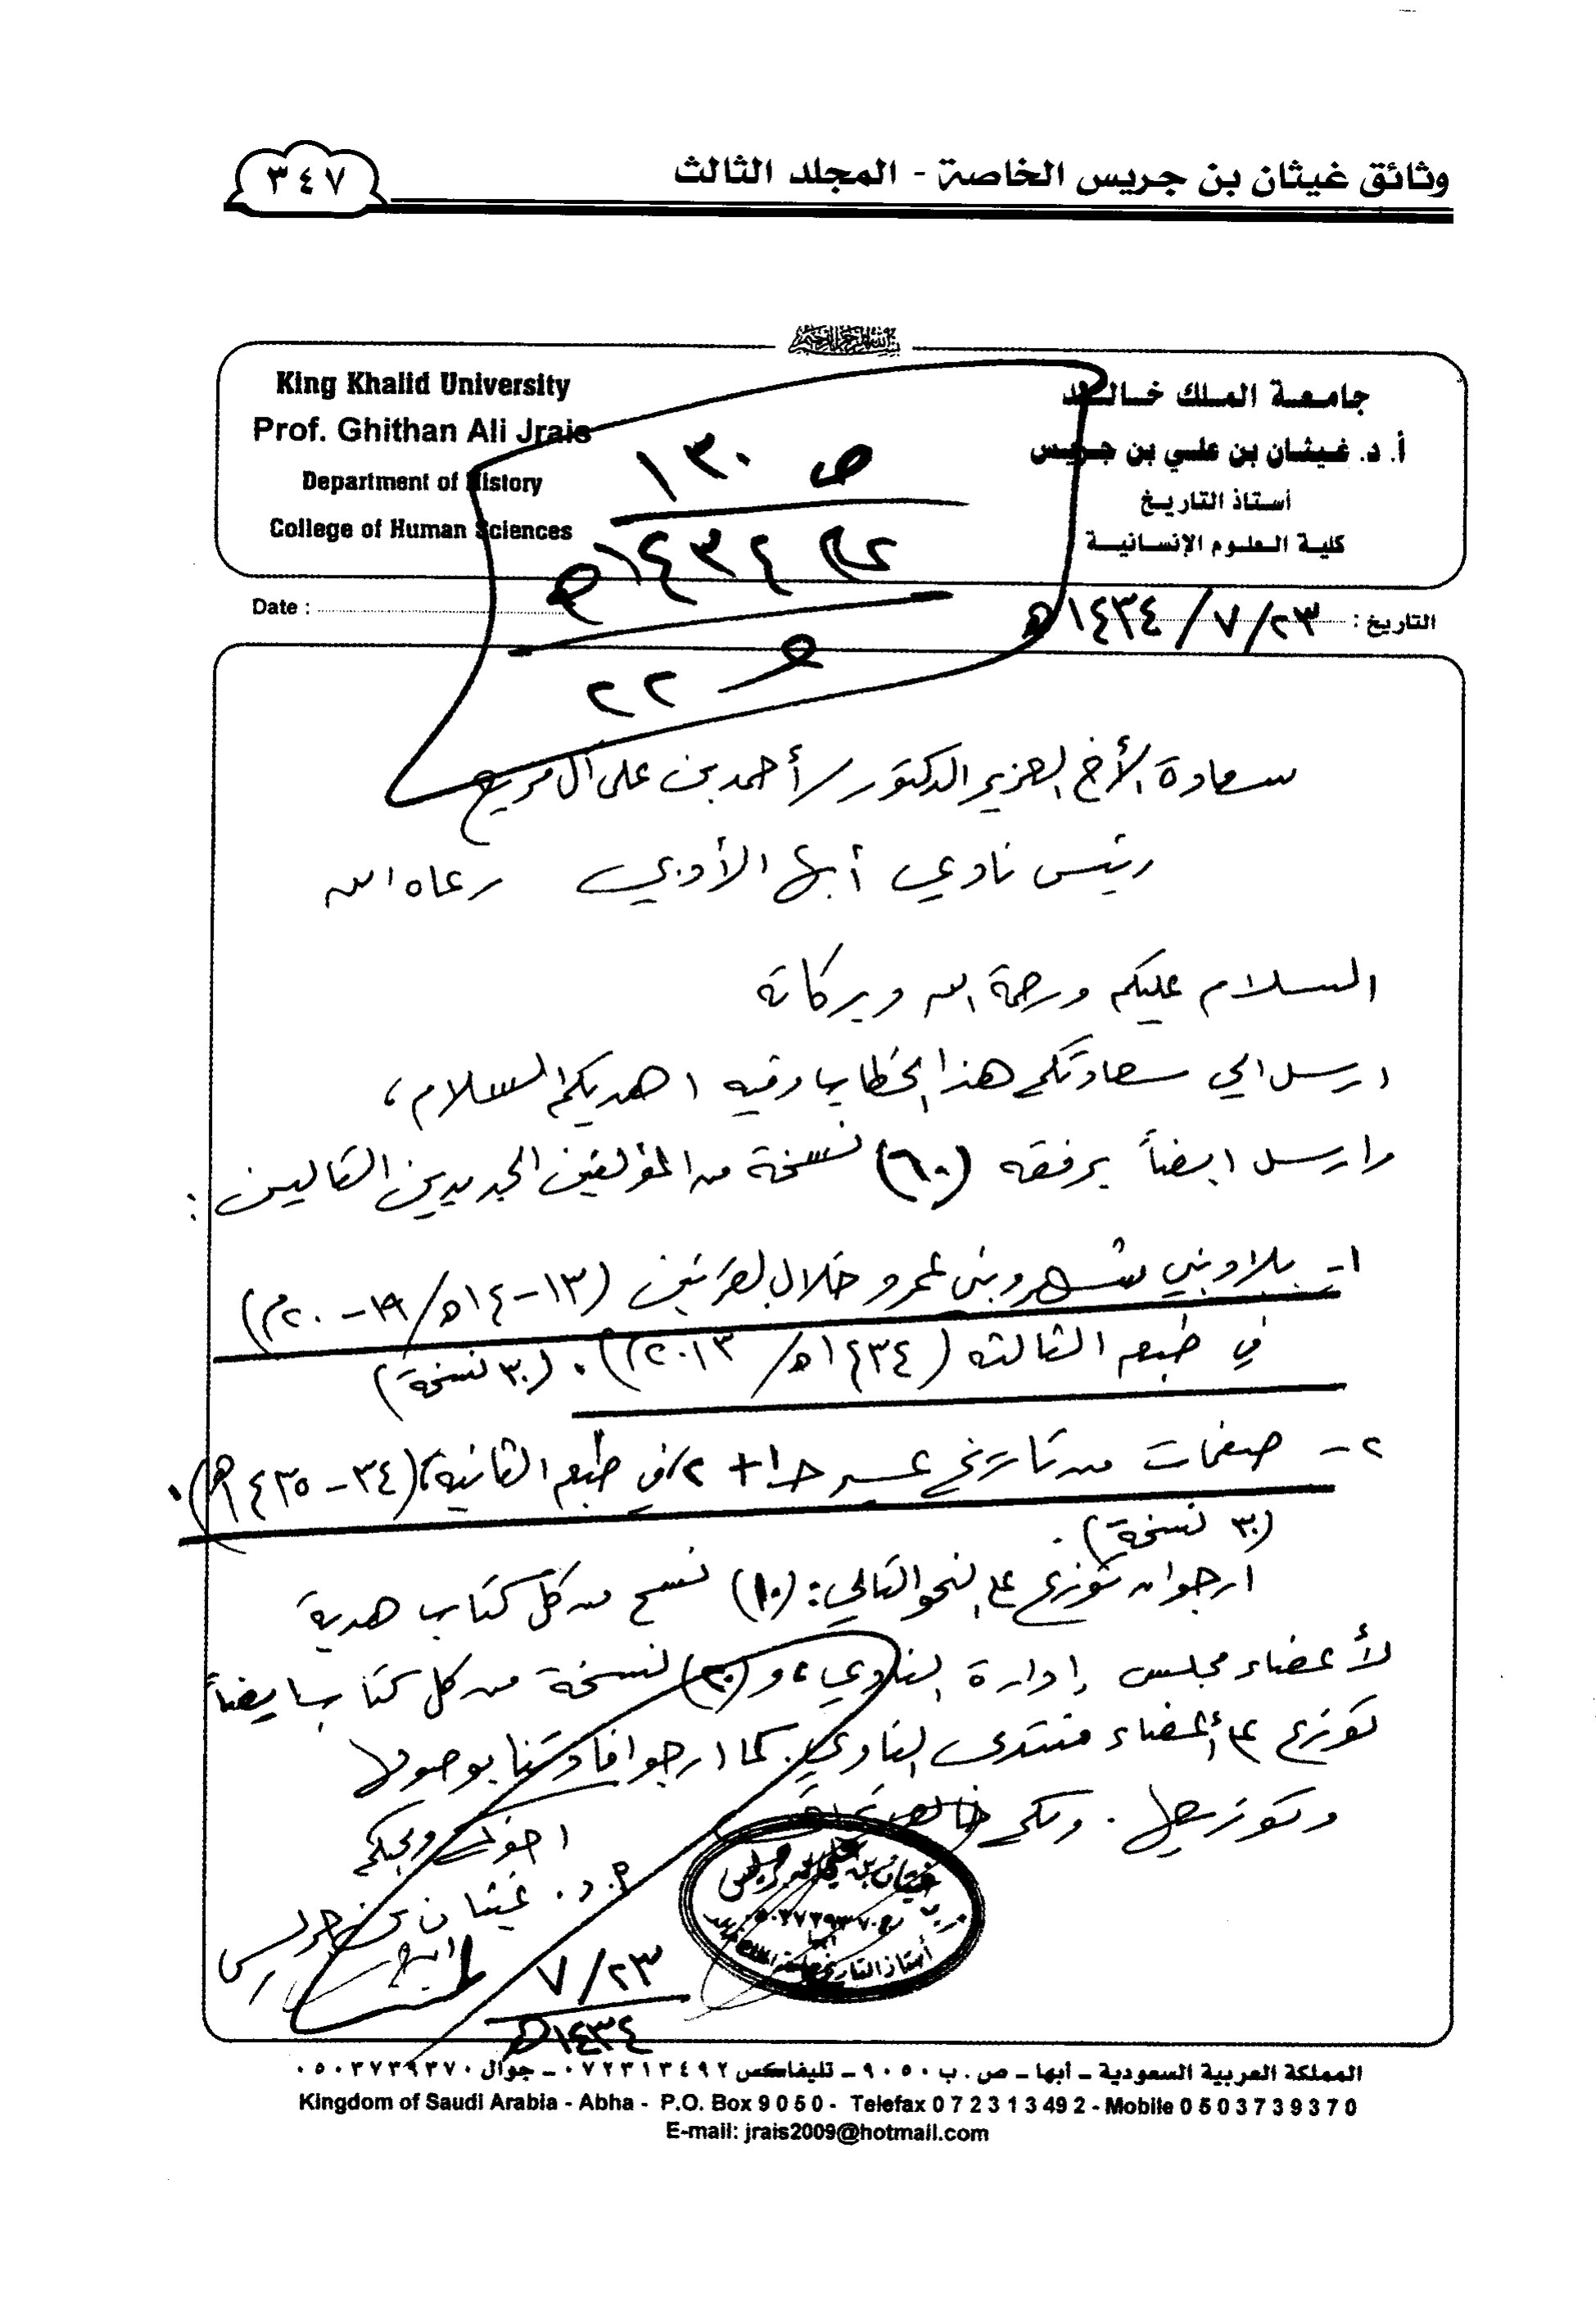 وثائق غيثان بن جريس الخاصة - المجلد الثالث
٣٤٧
جامعة الملك خالد
أ. د. غيثان بن علي بن جريس
أستاذ التاريخ
كلية العلوم الإنسانية
King Khalid University
Prof. Ghithan Ali Jrais
Department of History
College of Human Sciences
ص ١٣٠
١٤٣٤هـ
٢٢
التاريخ : ٢٣/ ٧/ ١٤٣٤هـ
Date :
سعادة الأخ العزيز الدكتور/ أحمد بن علي آل مريع
رئيس نادي أبها الأدبي رعاه الله
السلام عليكم ورحمة الله وبركاته
ارسل الى سعادتكم هذا الخطاب وفيه اهديكم السلام،
وارسل ايضاً برفقه (٦٠) نسخة من المؤلفين الجديدين التاليين :
١- بلاد بني شهر وبني عمرو خلال القرنين (١٣-١٤هـ/ ١٩-٢٠م)
في طبعته الثالثه (١٤٣٤هـ/ ٢٠١٣م). (٣٠ نسخة)
٢- صفحات من تاريخ عسير جـ١+٢/ في طبعته الثانية، (٣٤-١٤٣٥هـ).
(٣٠ نسخة).
ارجو ان توزع على النحو التالي: (١٠) نسخ من كل كتاب هدية
لأعضاء مجلس إدارة النادي، و(٢٠) نسخة من كل كتاب ايضاً
توزع على أعضاء منتدى النادي. كما ارجو افادتنا بوصولها
وتوزيعها. ولكم خالص تحياتي
اخوكم ومحبكم
أ. د. غيثان بن جريس
٢٣/ ٧
١٤٣٤هـ
غيثان بن علي بن جريس
٠٥٠٣٧٣٩٣٧٠
أبها
أستاذ التاريخ بجامعة الملك خالد
المملكة العربية السعودية - أبها - ص . ب ٩٠٥٠ - تليفاكس ٠٧٢٣١٣٤٩٢ - جوال ٠٥٠٣٧٣٩٣٧٠
Kingdom of Saudi Arabia - Abha - P.O. Box 9 0 5 0 - Telefax 0 7 2 3 1 3 4 9 2 - Mobile 0 5 0 3 7 3 9 3 7 0
E-mail: jrais2009@hotmail.com